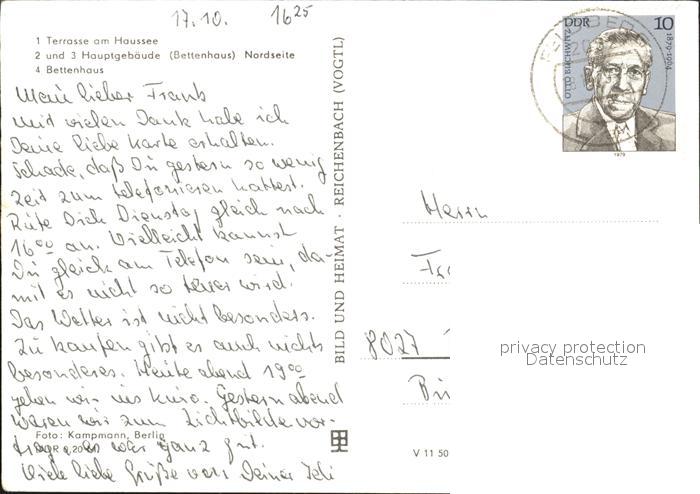 17.10. 16²⁵
1 Terrasse am Haussee
2 und 3 Hauptgebäude (Bettenhaus) Nordseite
4 Bettenhaus
Mein lieber Frank
mit vielen Dank habe ich
Deine liebe Karte erhalten.
Schade, daß Du gestern so wenig
Zeit zum telefonieren hattest.
Rufe Dich Dienstag gleich nach
16⁰⁰ an. Vielleicht kannst
Du gleich am Telefon sein, da-
mit es nicht so teuer wird.
Das Wetter ist nicht besonders.
Zu kaufen gibt es auch nichts
besonderes. Heute abend 19⁰⁰
gehen wir ins Kino. Gestern abend
waren wir zum Lichtbildervor-
trag, es war ganz gut.
Viele liebe Grüße von Deiner
Foto: Kampmann, Berlin
BILD UND HEIMAT · REICHENBACH (VOGTL)
V 11 50
DDR 10
OTTO BUCHWITZ
1879-1964
1979
Herrn
8027
privacy protection
Datenschutz